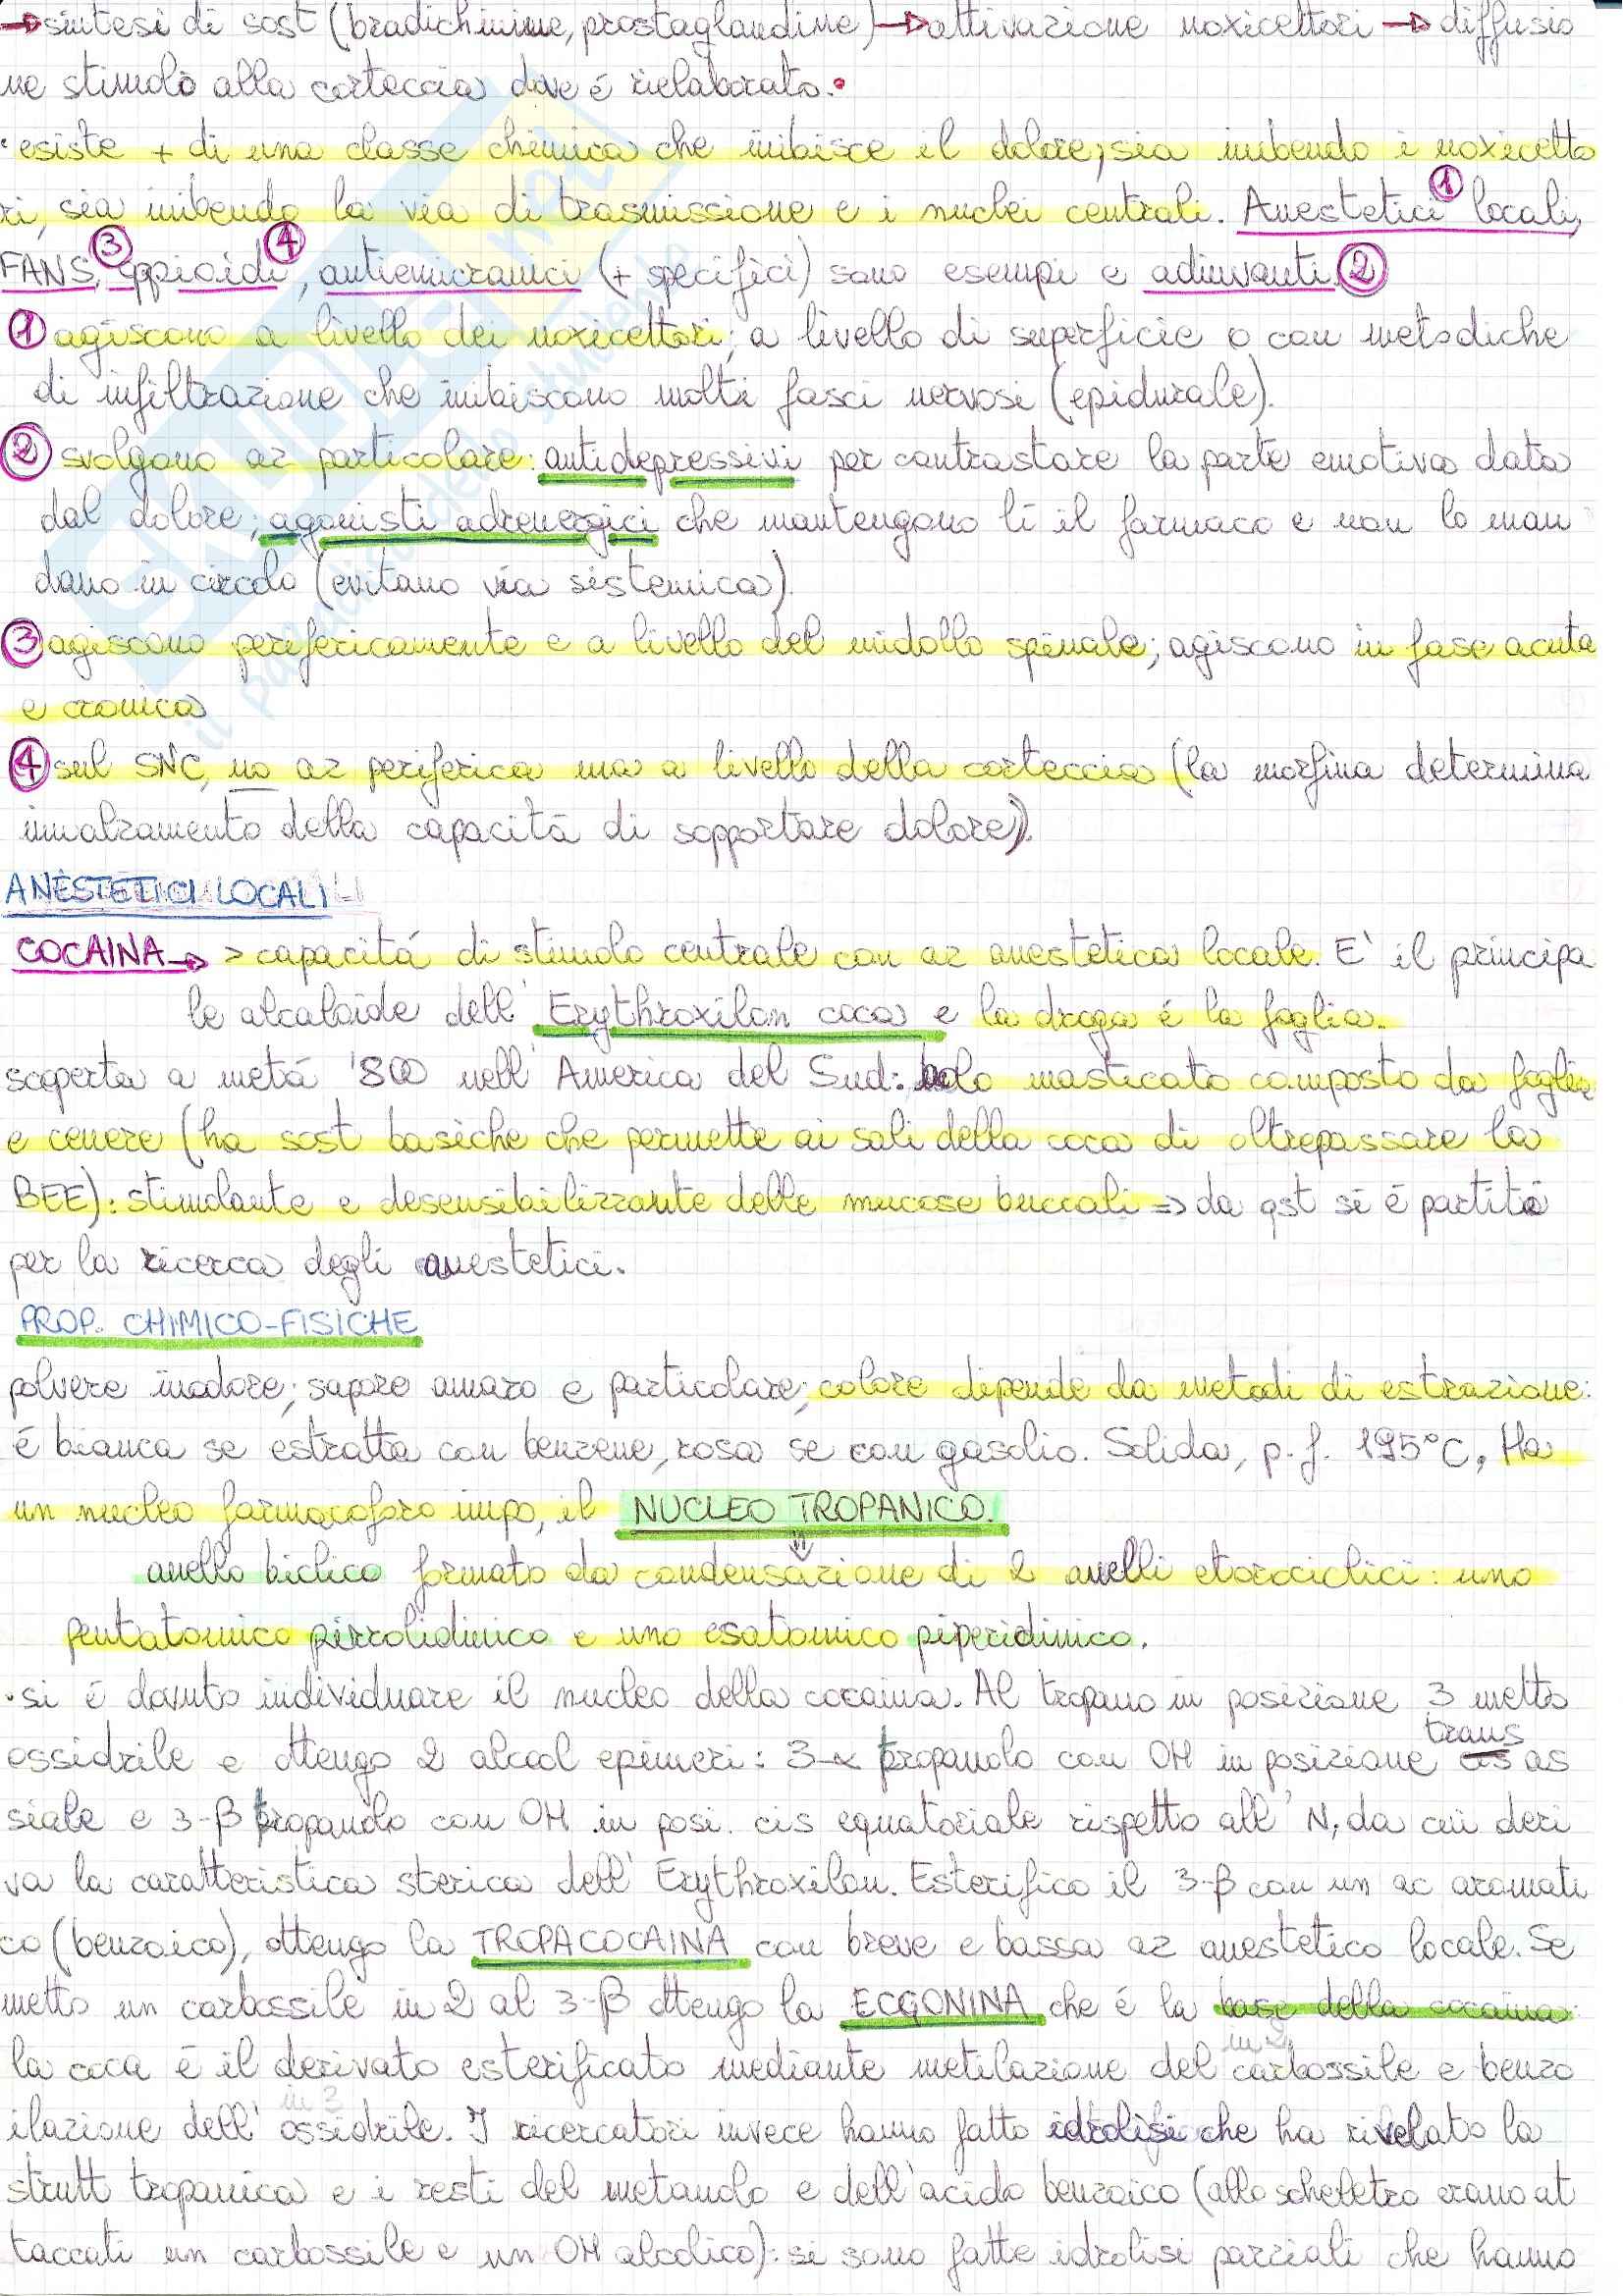 →sintesi di sost (bradichinine, prostaglandine)→attivazione noxicettori→diffusio
ne stimolo alla corteccia dove é rielaborato.
•esiste + di una classe chimica che inibisce il dolore, sia inibendo i noxicetto
ri, sia inibendo la via di trasmissione e i nuclei centrali. Anestetici① locali,
FANS③, oppioidi④, antiemicranici (+ specifici) sono esempi e adiuvanti.②
①agiscono a livello dei noxicettori; a livello di superficie o con metodiche
di infiltrazione che inibiscono molti fasci nervosi (epidurale).
②svolgono az particolare: antidepressivi per contrastare la parte emotiva data
dal dolore; agonisti adrenergici che mantengono lì il farmaco e non lo man
dano in circolo (evitano via sistemica)
③agiscono perifericamente e a livello del midollo spinale; agiscono in fase acuta
e cronica
④sul SNC, no az periferica ma a livello della corteccia (la morfina determina
innalzamento della capacità di sopportare dolore).
ANESTETICI LOCALI
COCAINA→ > capacitá di stimolo centrale con az anestetica locale. E' il principa
le alcaloide dell' Erythroxilon coca e la droga é la foglia.
scoperta a metá '800 nell' America del Sud: bolo masticato composto da foglie
e cenere (ha sost basiche che permette ai sali della coca di oltrepassare la
BEE): stimolante e desensibilizzante delle mucose buccali => da qst si é partiti
per la ricerca degli anestetici.
PROP. CHIMICO-FISICHE
polvere inodore; sapore amaro e particolare; colore dipende da metodi di estrazione:
é bianca se estratta con benzene, rosa se con gasolio. Solida, p.f. 195°C. Ha
un nucleo farmacoforo impo, il NUCLEO TROPANICO.
anello biclico formato da condensazione di 2 anelli eterociclici: uno
pentatomico pirrolidinico e uno esatomico piperidinico.
•si é dovuto individuare il nucleo della cocaina. Al tropano in posizione 3 metto
ossidrile e ottengo 2 alcol epimeri: 3-α tropanolo con OH in posizione trans as
siale e 3-β tropanolo con OH in posi. cis equatoriale rispetto all' N, da cui deri
va la caratteristica sterica dell' Erythroxilon. Esterifico il 3-β con un ac aromati
co (benzoico), ottengo la TROPACOCAINA con breve e bassa az anestetico locale. Se
metto un carbossile in 2 al 3-β ottengo la ECGONINA che é la base della cocaina:
la coca é il derivato esterificato mediante metilazione del carbossile in 2 e benzo
ilazione dell' ossidrile in 3. I ricercatori invece hanno fatto idrolisi che ha rivelato la
strutt tropanica e i resti del metanolo e dell'acido benzoico (allo scheletro erano at
taccati un carbossile e un OH alcolico): si sono fatte idrolisi parziali che hanno